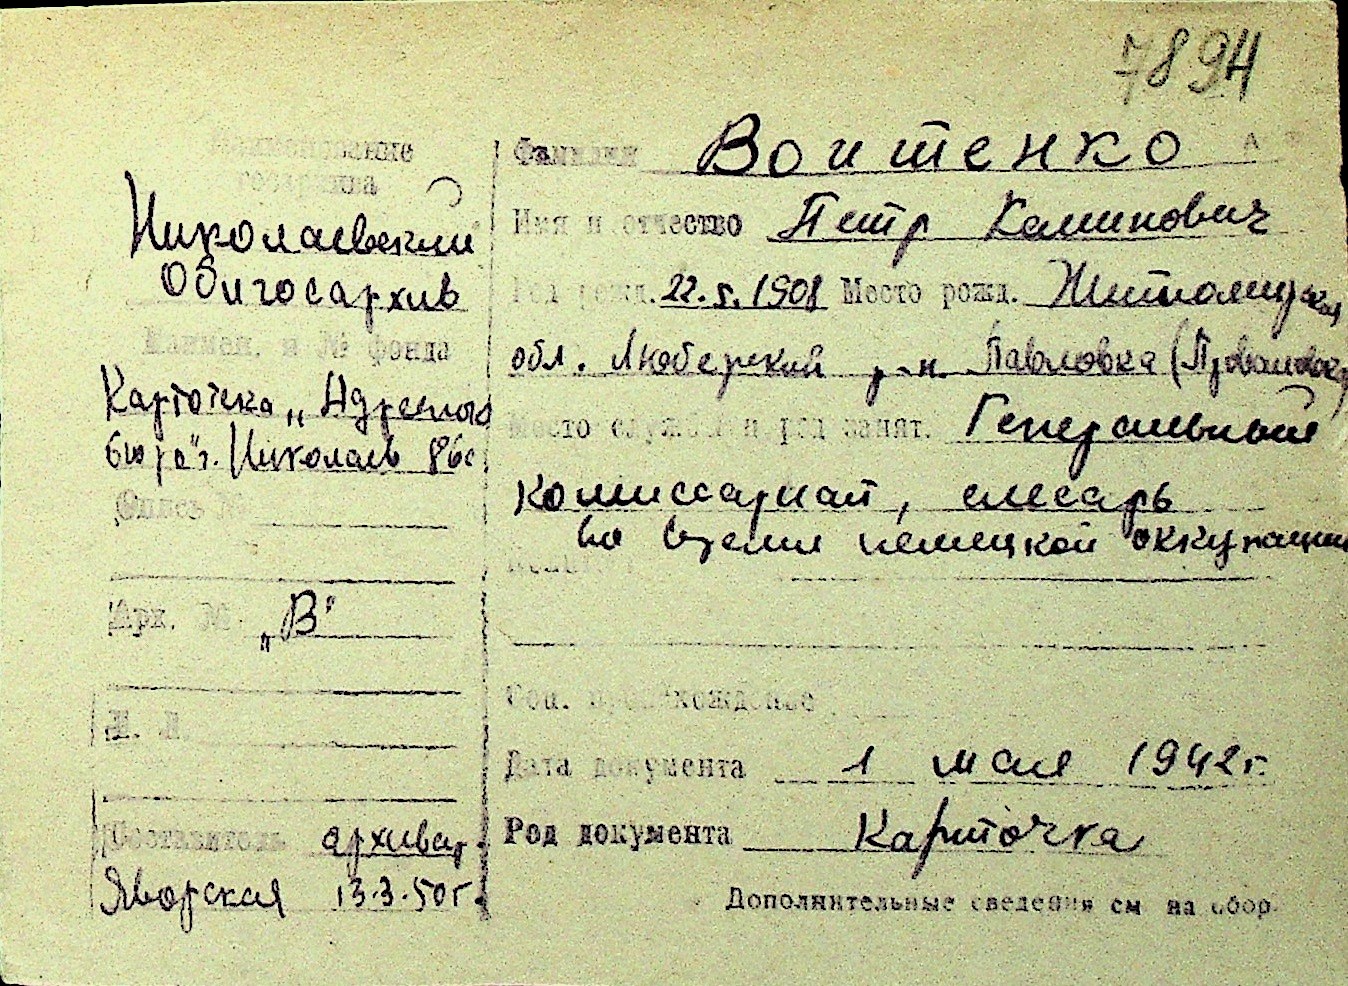 7894
Наименование
госархива
Николаевский
Облгосархив
Наимен. и № фонда
Картотека „Адресного
бюро" г. Николаев
Опись №
Арх. № „В"
Л. Л.
Составитель архивар.
Яворская 13.3.50 г.
Фамилия Воитенко
Имя и отчество Петр Калинович
Год рожд. 22.5.1908 Место рожд. Житомирская
обл. Люберский р-н. Павловка
Место службы и род занят. Генеральный
комиссариат, слесарь
во время немецкой оккупации
Соц. происхождение
Дата документа 1 мая 1942 г.
Род документа Карточка
Дополнительные сведения см на обор.